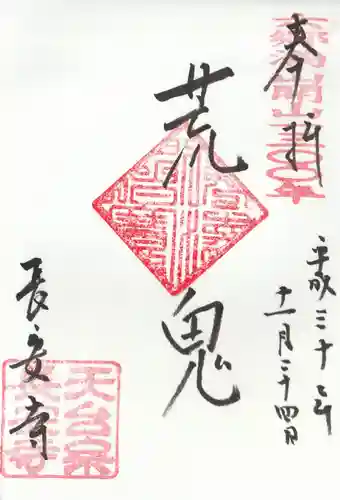 奉拝
平成三十年
十一月二十四日
荒鬼
長安寺
天台宗
長安寺